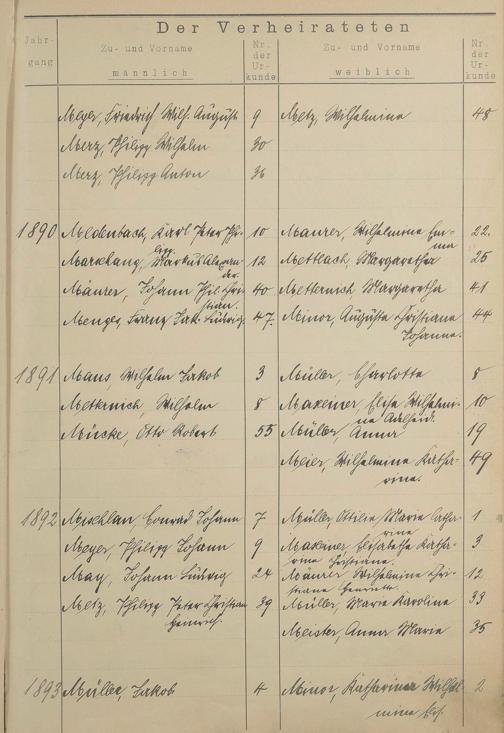 Der Verheirateten
Jahr-
gang
Zu- und Vorname
männlich
Nr.
der
Ur-
kunde
Zu- und Vorname
weiblich
Nr.
der
Ur-
kunde
Meyer, Friedrich Wilh. August 9 Metz, Wilhelmine 48
Merz, Philipp Wilhelm 30
Merz, Philipp Anton 36
1890 Medenbach, Karl Peter Phi- 10 Maurer, Wilhelmine Em- 22.
lipp. ma
Marxlang, Markus Alexan- 12 Mettlach, Margaretha 25
der.
Mäurer, Johann Phil. Chri- 40 Metternich, Margaretha 41
stian.
Menges, Franz Jak. Ludwig. 47. Minor, Auguste Christiane 44
Johanne.
1891 Maus Wilhelm Jakob 3 Müller, Charlotte 8
Metternich, Wilhelm 8 Maxeiner, Elise Wilhelmi- 10
ne Adelheid.
Mücke, Otto Robert 55 Müller, Anna 19
Meier, Wilhelmine Katha- 49
rine.
1892 Conrad Johann 7 Müller Ottilie Marie Catha- 1
rine
Meyer, Philipp Johann 9 Maxeiner, Elisabethe Katha- 3
rine Christiane.
May, Johann Ludwig 24 Mäurer Wilhelmine Chri- 12
stiane Henriette.
Metz, Philipp Peter Christian 39 Müller, Marie Karoline 33
Heinrich.
Meister, Anna Marie 35
1893 Müller, Jakob 4 Minor, Katharina Wilhel- 2
mine